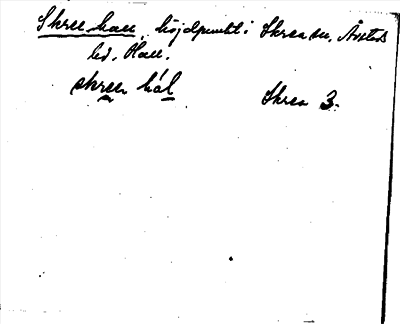 Skree-hall, höjdpunkt i Skrea sn, Årstads
hd, Hall.
skreæ hál
Skrea 3.